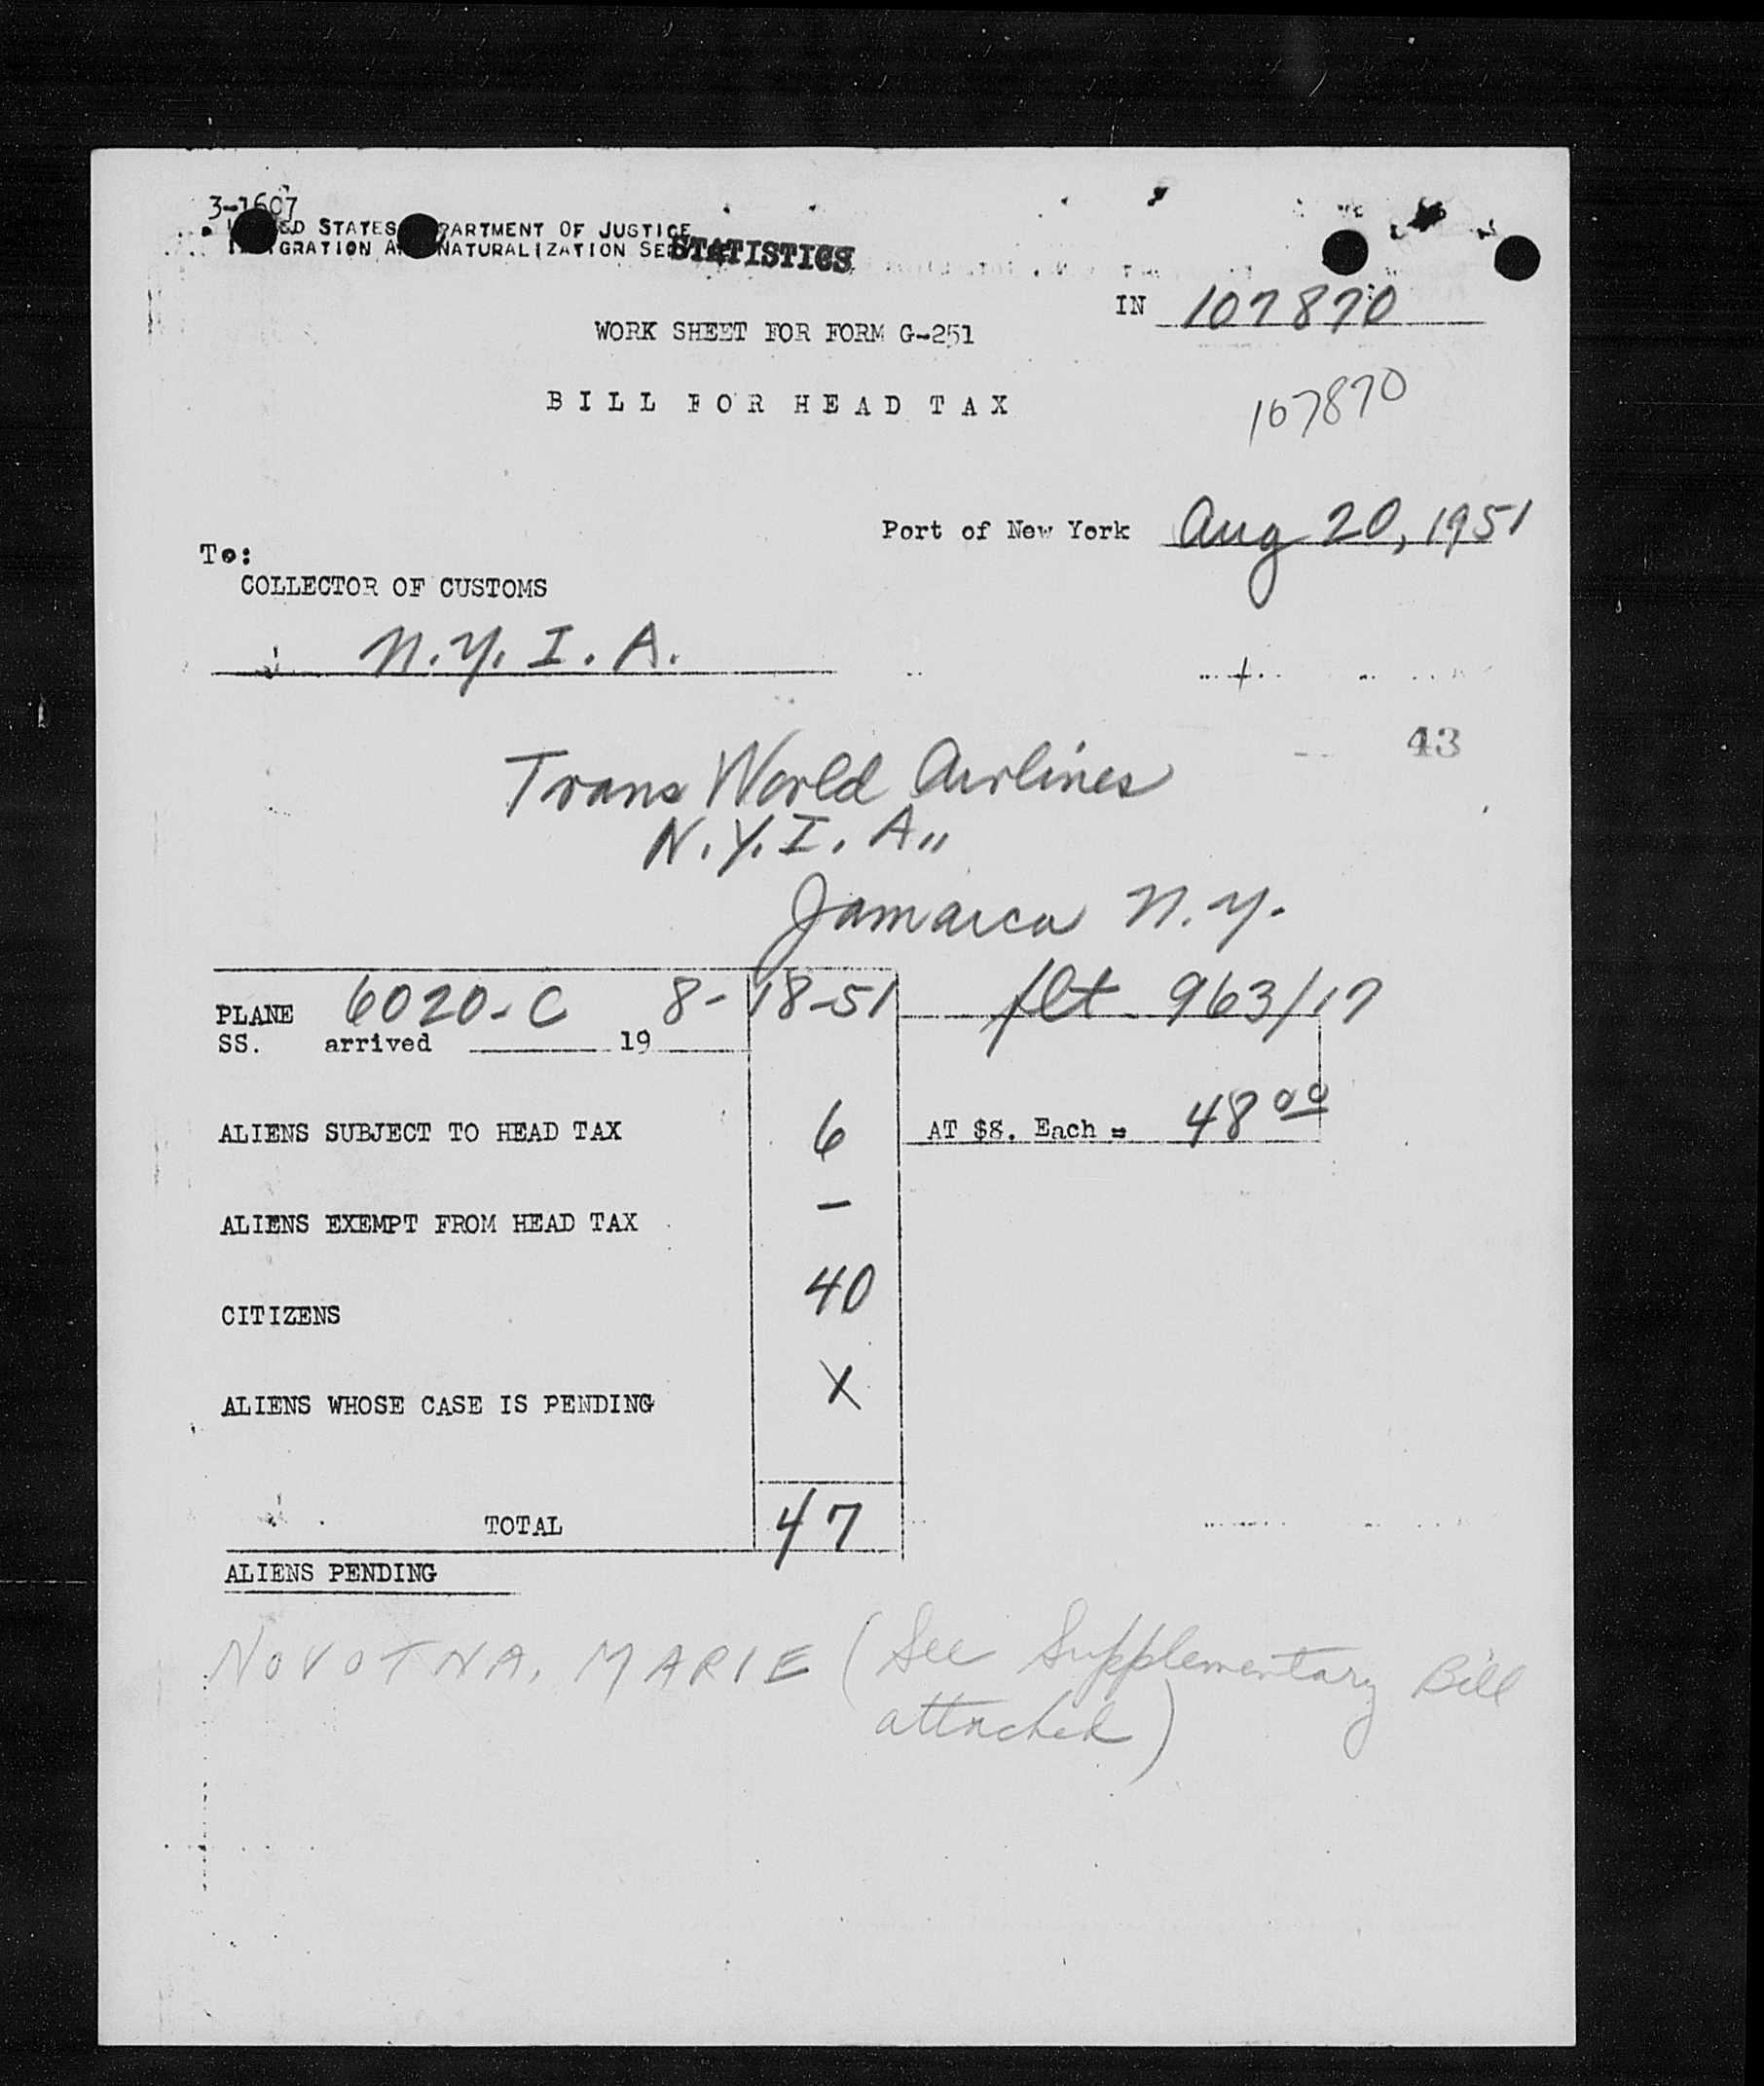 3-1607
STATES PARTMENT OF JUSTICE
GRATION NATURALIZATION SE
STATISTICS
IN 107870
WORK SHEET FOR FORM G-251
BILL FOR HEAD TAX
107870
Port of New York Aug 20, 1951
To:
COLLECTOR OF CUSTOMS
N.Y.I.A.
43
Trans World Airlines
N.Y.I.A.,
Jamaica N.Y.
PLANE 6020-C 8-18-51 flt 963/17
SS. arrived 19
ALIENS SUBJECT TO HEAD TAX 6 AT $8. Each = 48 00
ALIENS EXEMPT FROM HEAD TAX -
CITIZENS 40
ALIENS WHOSE CASE IS PENDING X
TOTAL 47
ALIENS PENDING
NOVOTNA, MARIE (See Supplementary Bill
attached)